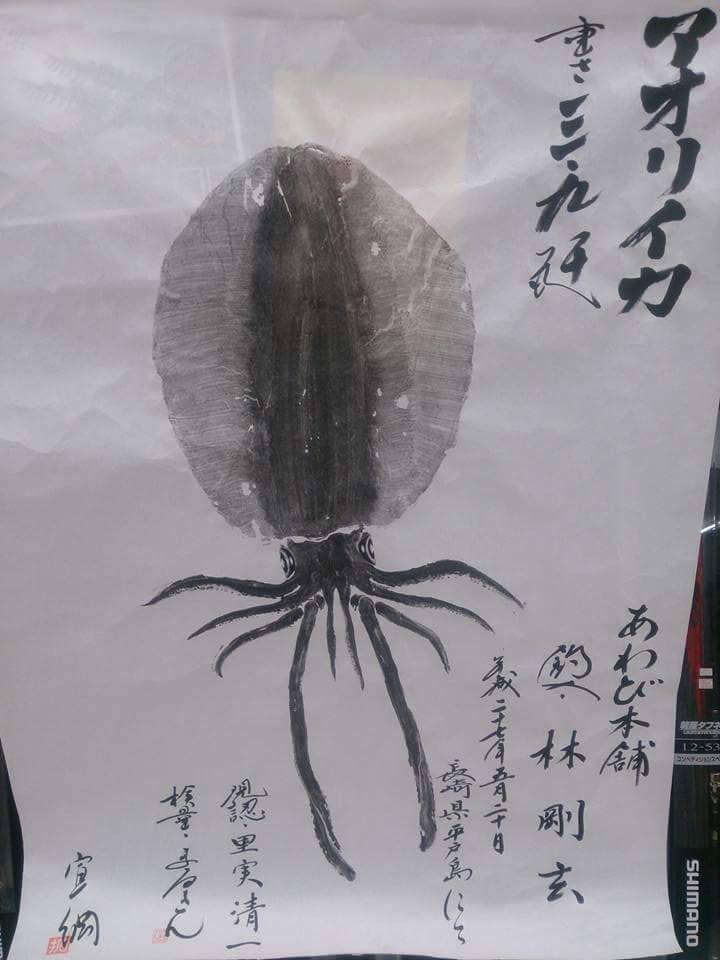 アオリイカ
重さ 三・九 瓩
あわび本舗
釣人・林 剛玄
平成二十七年五月二十日
長崎県平戸島にて
現認・里実清一
検量・
宣綱
SHIMANO
1.2-53